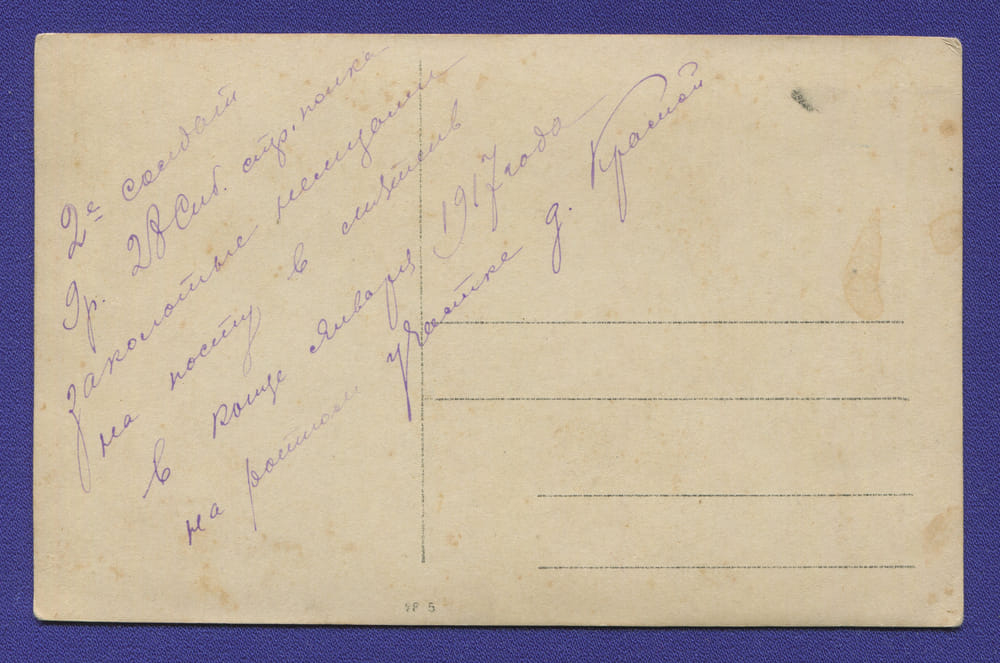 2е солдат
9р. 28 Сиб. стр. полка
заколотые немцами
на посту в
в конце января 1917 года
на ротном участке д. Красной
5